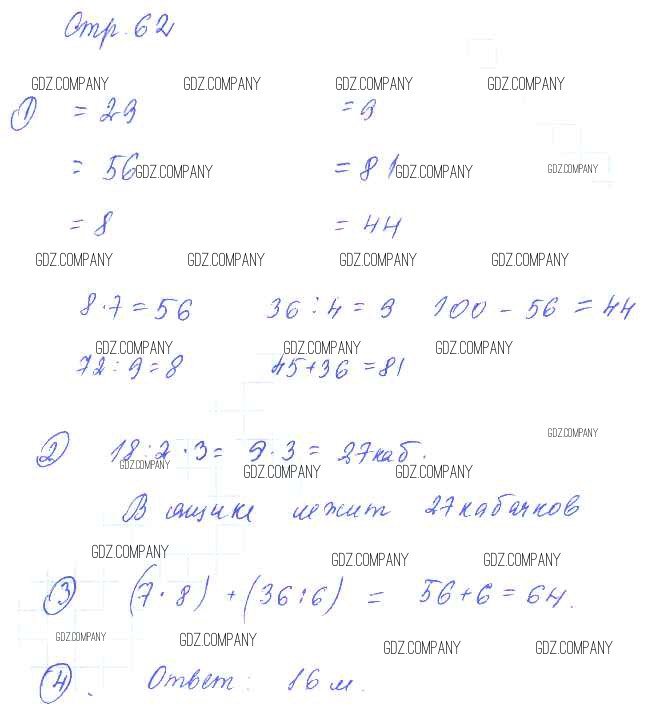 Стр. 62
GDZ.COMPANY GDZ.COMPANY GDZ.COMPANY GDZ.COMPANY
① = 29 = 9
= 56 GDZ.COMPANY = 81 GDZ.COMPANY GDZ.COMPANY
= 8 = 44
GDZ.COMPANY GDZ.COMPANY GDZ.COMPANY GDZ.COMPANY
8·7 = 56 36 : 4 = 9 100 - 56 = 44
GDZ.COMPANY GDZ.COMPANY GDZ.COMPANY
72 : 9 = 8 45+36 = 81
GDZ.COMPANY
② 18 : 2 · 3 = 9 · 3 = 27 каб.
GDZ.COMPANY GDZ.COMPANY GDZ.COMPANY
В ящике лежит 27 кабачков
GDZ.COMPANY GDZ.COMPANY GDZ.COMPANY
③ (7 · 8) + (36 : 6) = 56 + 6 = 64.
GDZ.COMPANY GDZ.COMPANY GDZ.COMPANY GDZ.COMPANY
④. Ответ: 16 м.